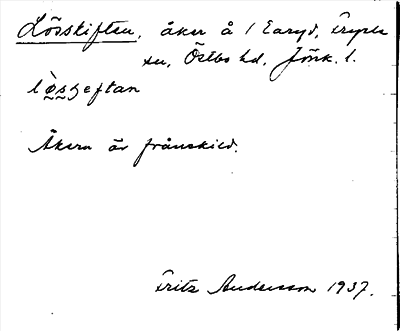 Lösskiften, åker å 1 Earyd, Tryserums
sn, Östbo hd, Jönk. l.
lo̱ṣʒeftan
Åkern är frånskild.
Fritz Andersson 1937.